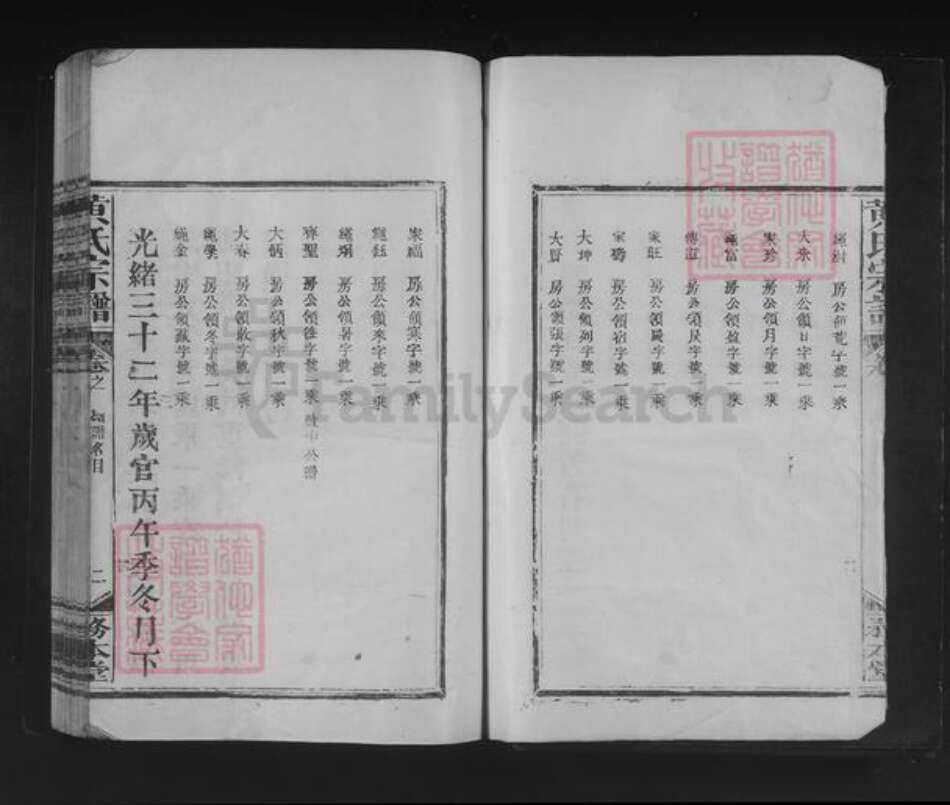 黃氏宗譜
大永 房公領日字號一乘
家珍 房公領月字號一乘
繩富 房公領盈字號一乘
傳道 房公領昃字號一乘
家旺 房公領辰字號一乘
家騁 房公領宿字號一乘
大坤 房公領列字號一乘
大賢 房公領張字號一乘
家福 房公領寒字號一乘
繩鈺 房公領來字號一乘
房公領暑字號一乘
齊聖 房公領往字號一乘
大炳 房公領秋字號一乘
大春 房公領收字號一乘
繩學 房公領冬字號一乘
繩金 房公領藏字號一乘
光緒三十二年歲官丙午季冬月下
黃氏宗譜
卷之一
領譜名目
二
務本堂
FamilySearch